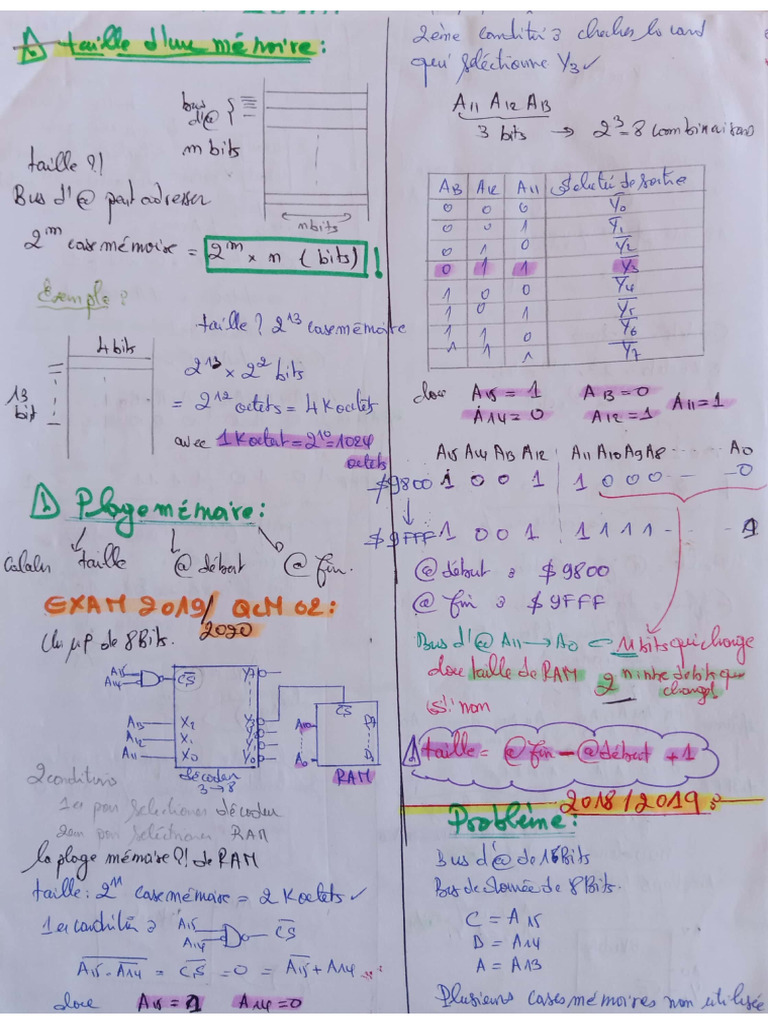 taille d'une mémoire:
bus
d'@
m bits
taille ?!
Bus d'@ peut adresser
n bits
2^m case mémoire = 2^m × n (bits) !
Exemple:
taille? 2^13 case mémoire
4 bits
13
bit
2^13 × 2^2 bits
= 2^12 octets = 4 K octets
avec 1 K octet = 2^10 = 1024
octets
Plage mémoire:
Calculer taille @ début @ fin.
EXAM 2019/ QCM 02:
2020
Un µP de 8 Bits.
A15
A14
CS
Y7
Y3
Y0
A13 X2
A12 X1
A11 X0
décoder
3 → 8
CS
A10
A0
D7
D0
RAM
2 conditions
1er pour Sélectionner décoder
2em pour Sélectionner RAM
la plage mémoire ?! de RAM
taille: 2^11 case mémoire = 2 K octets ✓
1er condition:
A15
A14
CS
A15 . A14 = CS = 0 = A15 + A14
donc A15 = 1 A14 = 0
2ème condition: chercher le
qui Séléctionne Y3 ✓
A11 A12 A13
3 bits → 2^3 = 8 combinaisons
A13 A12 A11 de sortie
0 0 0 Y0
0 0 1 Y1
0 1 0 Y2
0 1 1 Y3
1 0 0 Y4
1 0 1 Y5
1 1 0 Y6
1 1 1 Y7
donc A15 = 1 A13 = 0 A11 = 1
A14 = 0 A12 = 1
A15 A14 A13 A12 A11 A10 A9 A8 A0
$9800 1 0 0 1 1 0 0 0 0
$9FFF 1 0 0 1 1 1 1 1 1
@ début : $9800
@ fin : $9FFF
Bus d'@ A11 → A0 11 bits qui change
donc taille de RAM 2 nmbre de bits que
change
Si non
taille = @ fin − @ début + 1
2018/2019:
Problème:
Bus d'@ de 16 Bits
Bus de donnée de 8 Bits.
C = A15
B = A14
A = A13
Plusieurs cases mémoires non utilisée